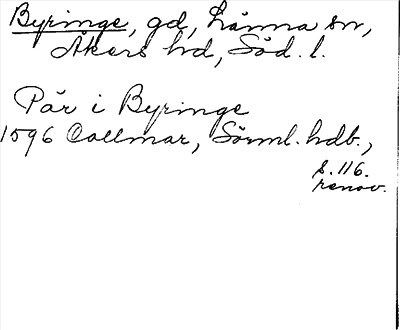 Byringe, gd, Länna sn,
Åkers hd, Söd. l.
Pär i Byringe
1596 Collmar, Sörml. hdb.,
s. 116.
renov.